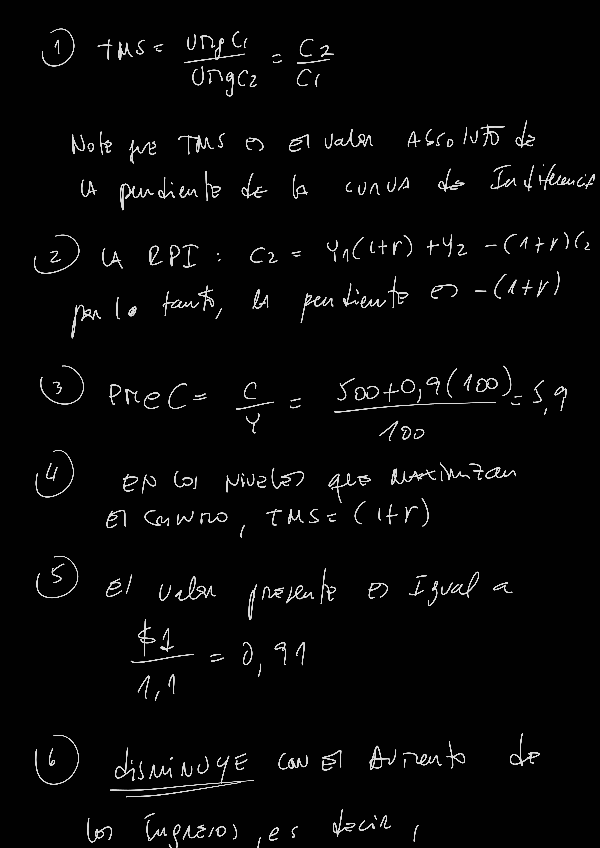 1 TMS = UMgC1 / UMgC2 = C2 / C1
Note que TMS es el valor Absoluto de
la pendiente de la curva de Indiferencia
2 LA RPI : C2 = Y1(1+r) + Y2 - (1+r)C2
por lo tanto, la pendiente es -(1+r)
3 PMeC = C / Y = 500+0,9(100) / 100 = 5,9
4 EN los Niveles que Maximizan
El Consumo, TMS = (1+r)
5 El valor presente es Igual a
$1 / 1,1 = 0,91
6 DISMINUYE con El Aumento de
los Ingresos, es decir,